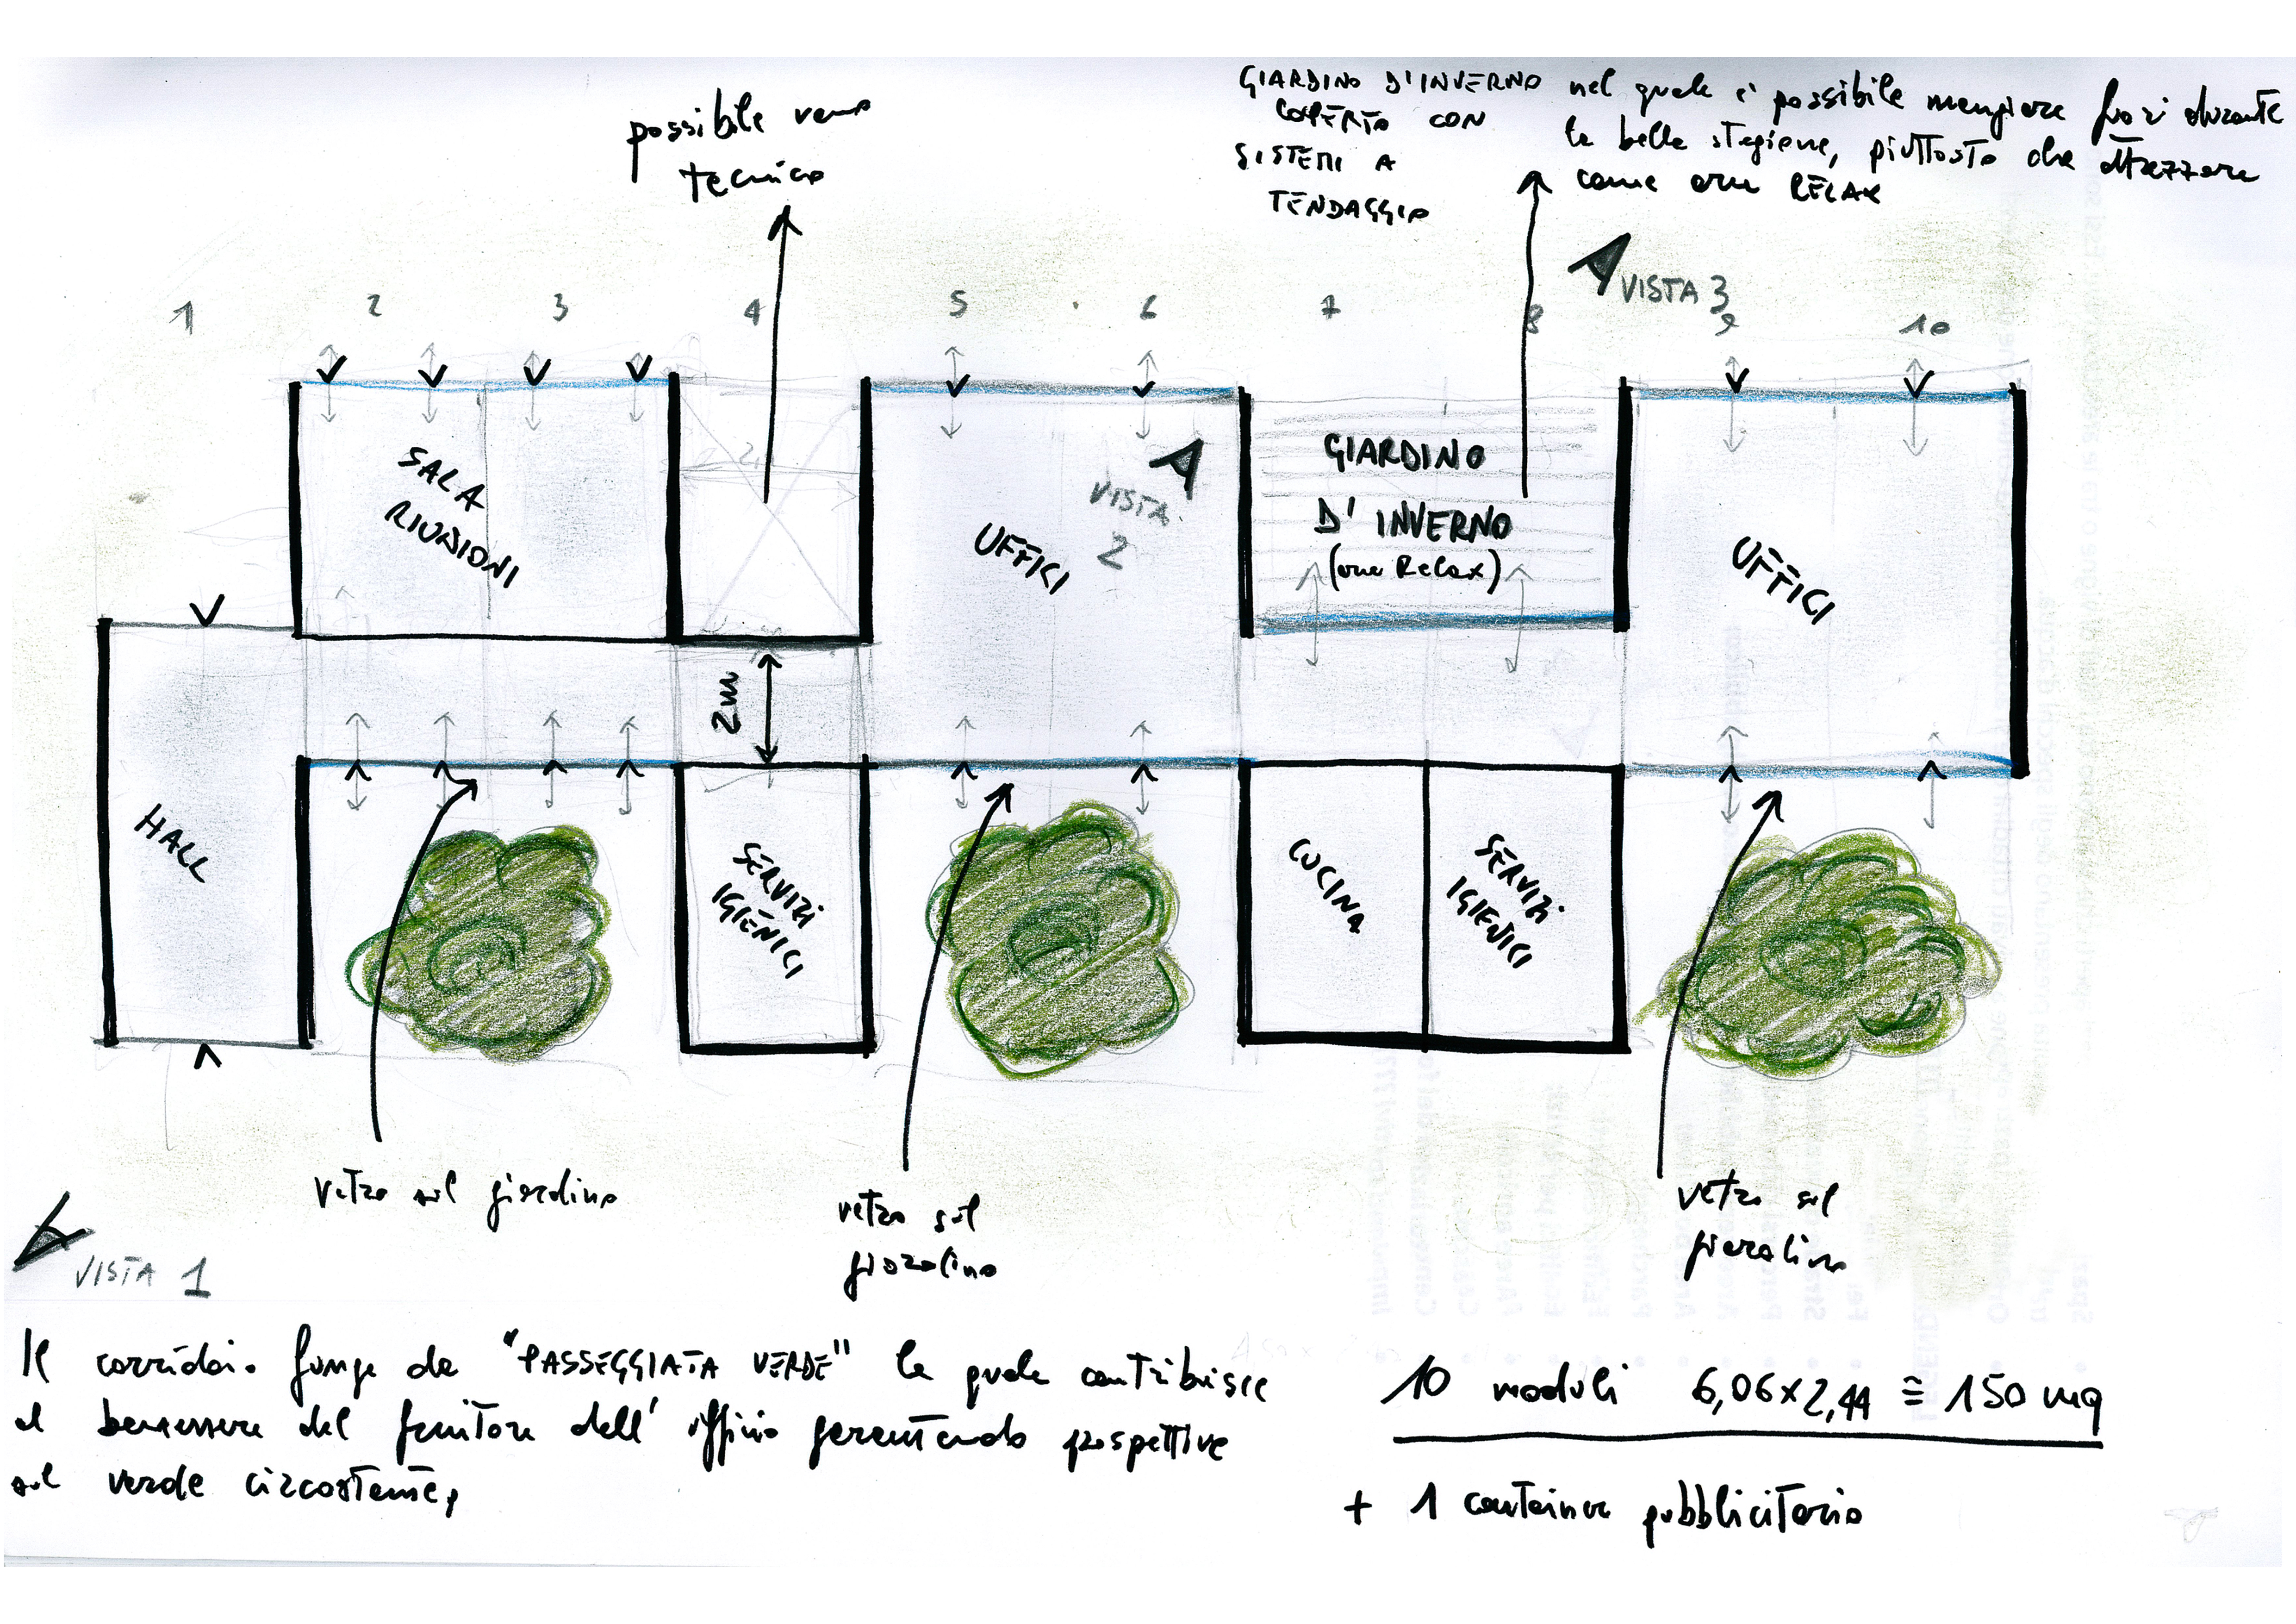 possibile vano
tecnico
GIARDINO D'INVERNO
COPERTO CON
SISTEMI A
TENDAGGIO
nel quale è possibile mangiare fuori durante
la bella stagione, piuttosto che attrezzare
come area RELAX
VISTA 3
1 2 3 4 5 6 7 8 9 10
SALA
RIUNIONI
UFFICI
VISTA
2
GIARDINO
D'INVERNO
(area Relax)
UFFICI
2m
HALL
SERVIZI
IGIENICI
CUCINA
SERVIZI
IGIENICI
vetro sul giardino
vetro sul
giardino
vetro sul
giardino
VISTA 1
Il corridoio funge da "PASSEGGIATA VERDE" la quale contribuisce
al benessere del fruitore dell'ufficio garantendo prospettive
sul verde circostante,
10 moduli 6,06x2,44 ≅ 150 mq
+ 1 container pubblicitario